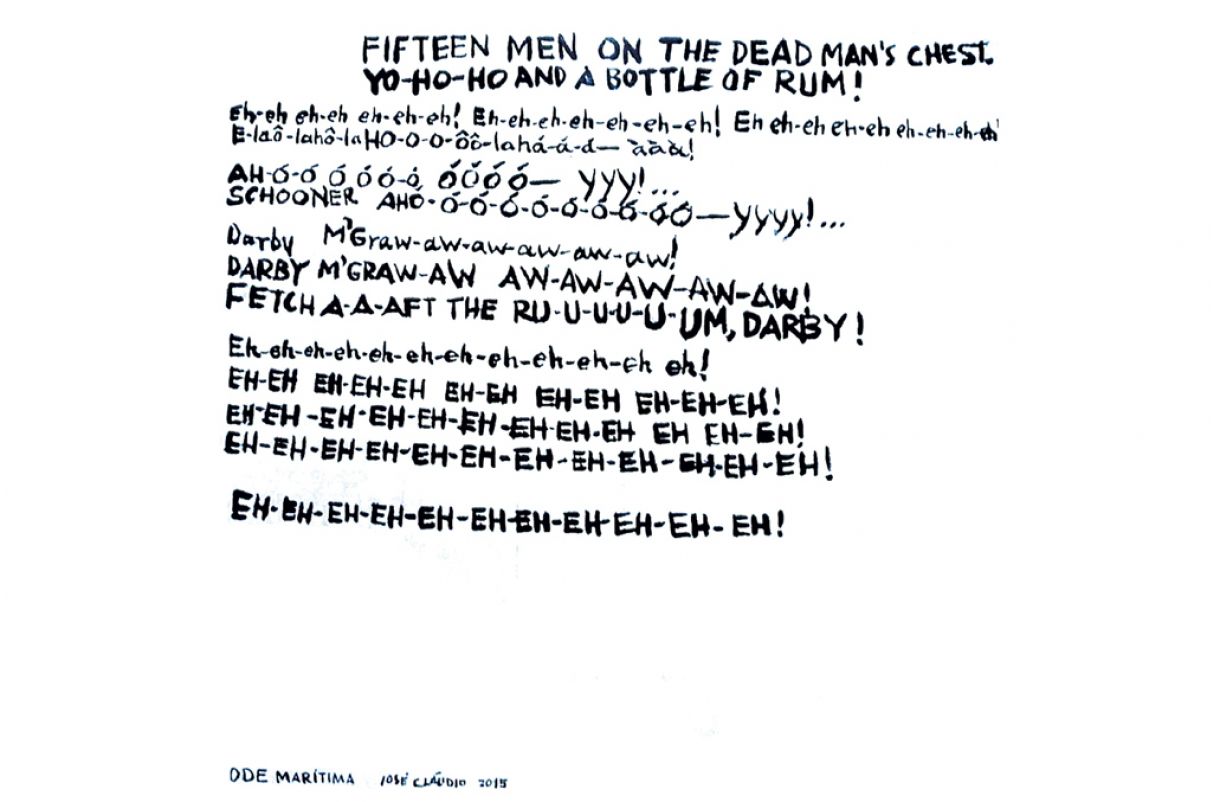 FIFTEEN MEN ON THE DEAD MAN'S CHEST.
YO-HO-HO AND A BOTTLE OF RUM!
Eh-eh eh-eh eh-eh-eh! Eh-eh-eh-eh-eh-eh-eh! Eh eh-eh eh-eh eh-eh-eh-eh!
E-laô-lahô-laHO-O-O-ôô-lahá-á-á— ààà!
AH-Ó-Ó Ó Ó Ó-Ó, ÓÓÓÓ— YYY!...
SCHOONER AHÓ-Ó-Ó-Ó-Ó-Ó-Ó-Ó-ÓÓ—yyyy!...
Darby M'Graw-aw-aw-aw-aw-aw!
DARBY M'GRAW-AW AW-AW-AW-AW-AW!
FETCH A-A-AFT THE RU-U-U-U-U-UM, DARBY!
Eh-eh-eh-eh-eh-eh-eh-eh-eh-eh-eh eh!
EH-EH EH-EH-EH EH-EH EH-EH EH-EH-EH!
EH-EH-EH-EH-EH-EH-EH-EH-EH EH EH-EH!
EH-EH-EH-EH-EH-EH-EH-EH-EH-EH-EH-EH!
EH-EH-EH-EH-EH-EH-EH-EH-EH-EH-EH!
ODE MARÍTIMA JOSÉ CLÁUDIO 2015